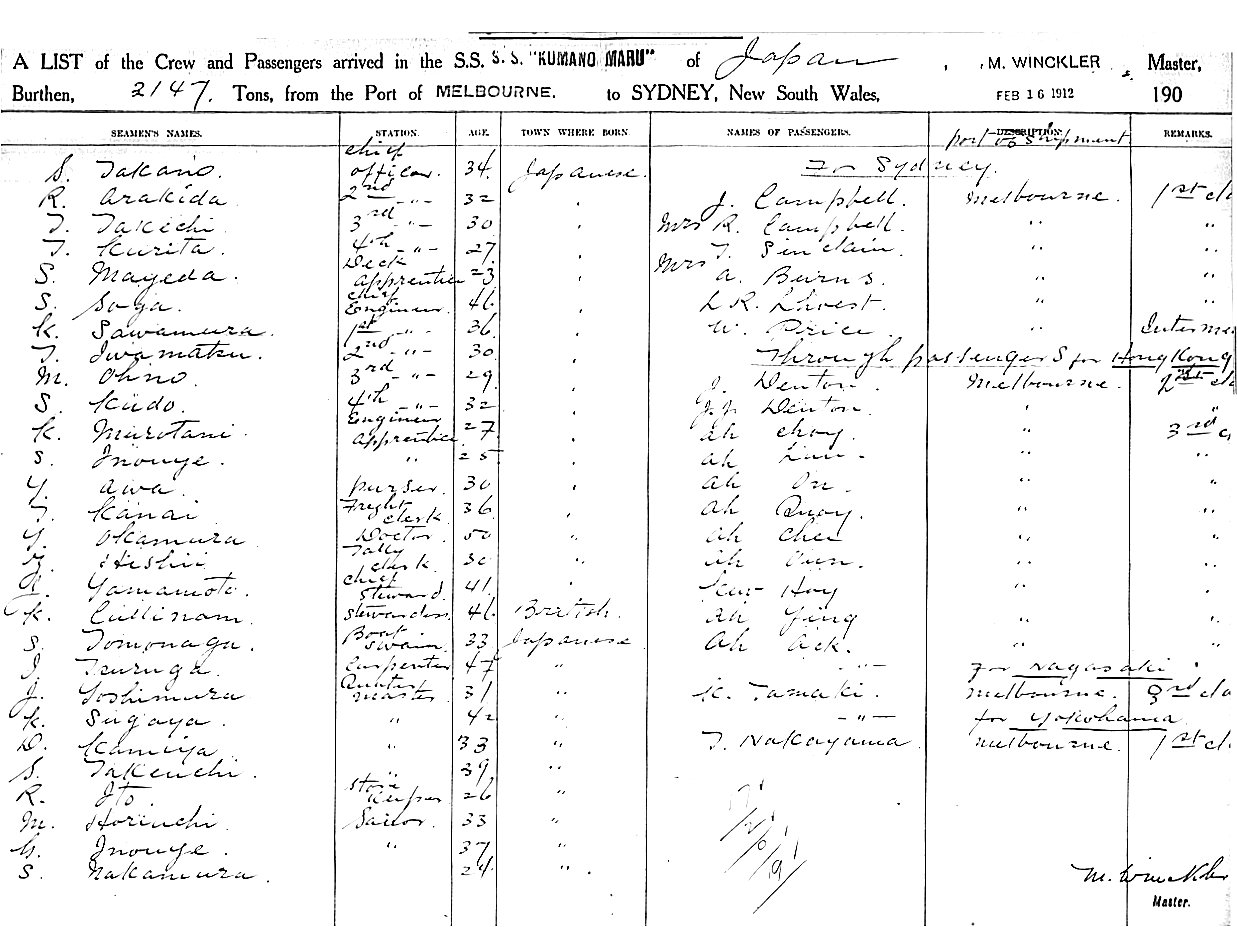 A LIST of the Crew and Passengers arrived in the S.S. S.S. "KUMANO MARU" of Japan, M. WINCKLER, Master,
Burthen, 2147. Tons, from the Port of MELBOURNE. to SYDNEY, New South Wales, FEB 16 1912 190
SEAMEN'S NAMES. STATION. AGE. TOWN WHERE BORN NAMES OF PASSENGERS. DESCRIPTION: port of Shipment REMARKS.
S. Takano. chief officer. 34. Japanese. For Sydney.
R. Arakida 2nd -"- 32 J. Campbell. Melbourne. 1st cla
T. Takechi 3rd -"- 30 Mrs R. Campbell. " "
T. Kurita. 4th -"- 27 Mrs T. Sinclain " "
S. Mayeda. Deck apprentice 23 A. Burns. " "
S. Soga. chief Engineer. 46 L.R. " "
K. Sawamura. 1st -"- 36 W. Price " Interme
T. Iwamatsu. 2nd -"- 30 Through passengers for Hong Kong
M. Ohno. 3rd -"- 29 J. Denton. Melbourne. cla
S. Kudo. 4th -"- 32 Denton. " "
K. Murotani. Engineer apprentice 27 Ah Choy. " 3rd c
S. Inouye. " 25 Ah " "
Y. Awa. purser. 30 Ah On. " "
T. Kanai Freght clerk 36 Ah Quoy. " "
Y. Okamura Doctor. 50 " Ah Chee " "
Hishii Tally clerk. 30 " Ah " "
Yamamoto. chief steward. 41 Hoy " "
K. Cullinam. stewardess 46 British. Ah Ying " "
S. Tomonaga. Boat swain. 33 Japanese Ah Ack. " "
J. Tsuruga. Carpenter 47 " -"- For Nagasaki
J. Yoshimura Quarter master 31 " K. Tamaki. Melbourne. 3rd cla
K. Sugaya. " 42 " -"- for Yokohama
D. Kamiya " 33 " T. Nakayama Melbourne. 1st cl
S. Takeuchi. " 39 "
R. Ito. Store Keeper 26 "
M. Horiuchi Sailor. 33 "
Inouye. " 37 "
S. Nakamura. 24 "
M. Winckler
Master.